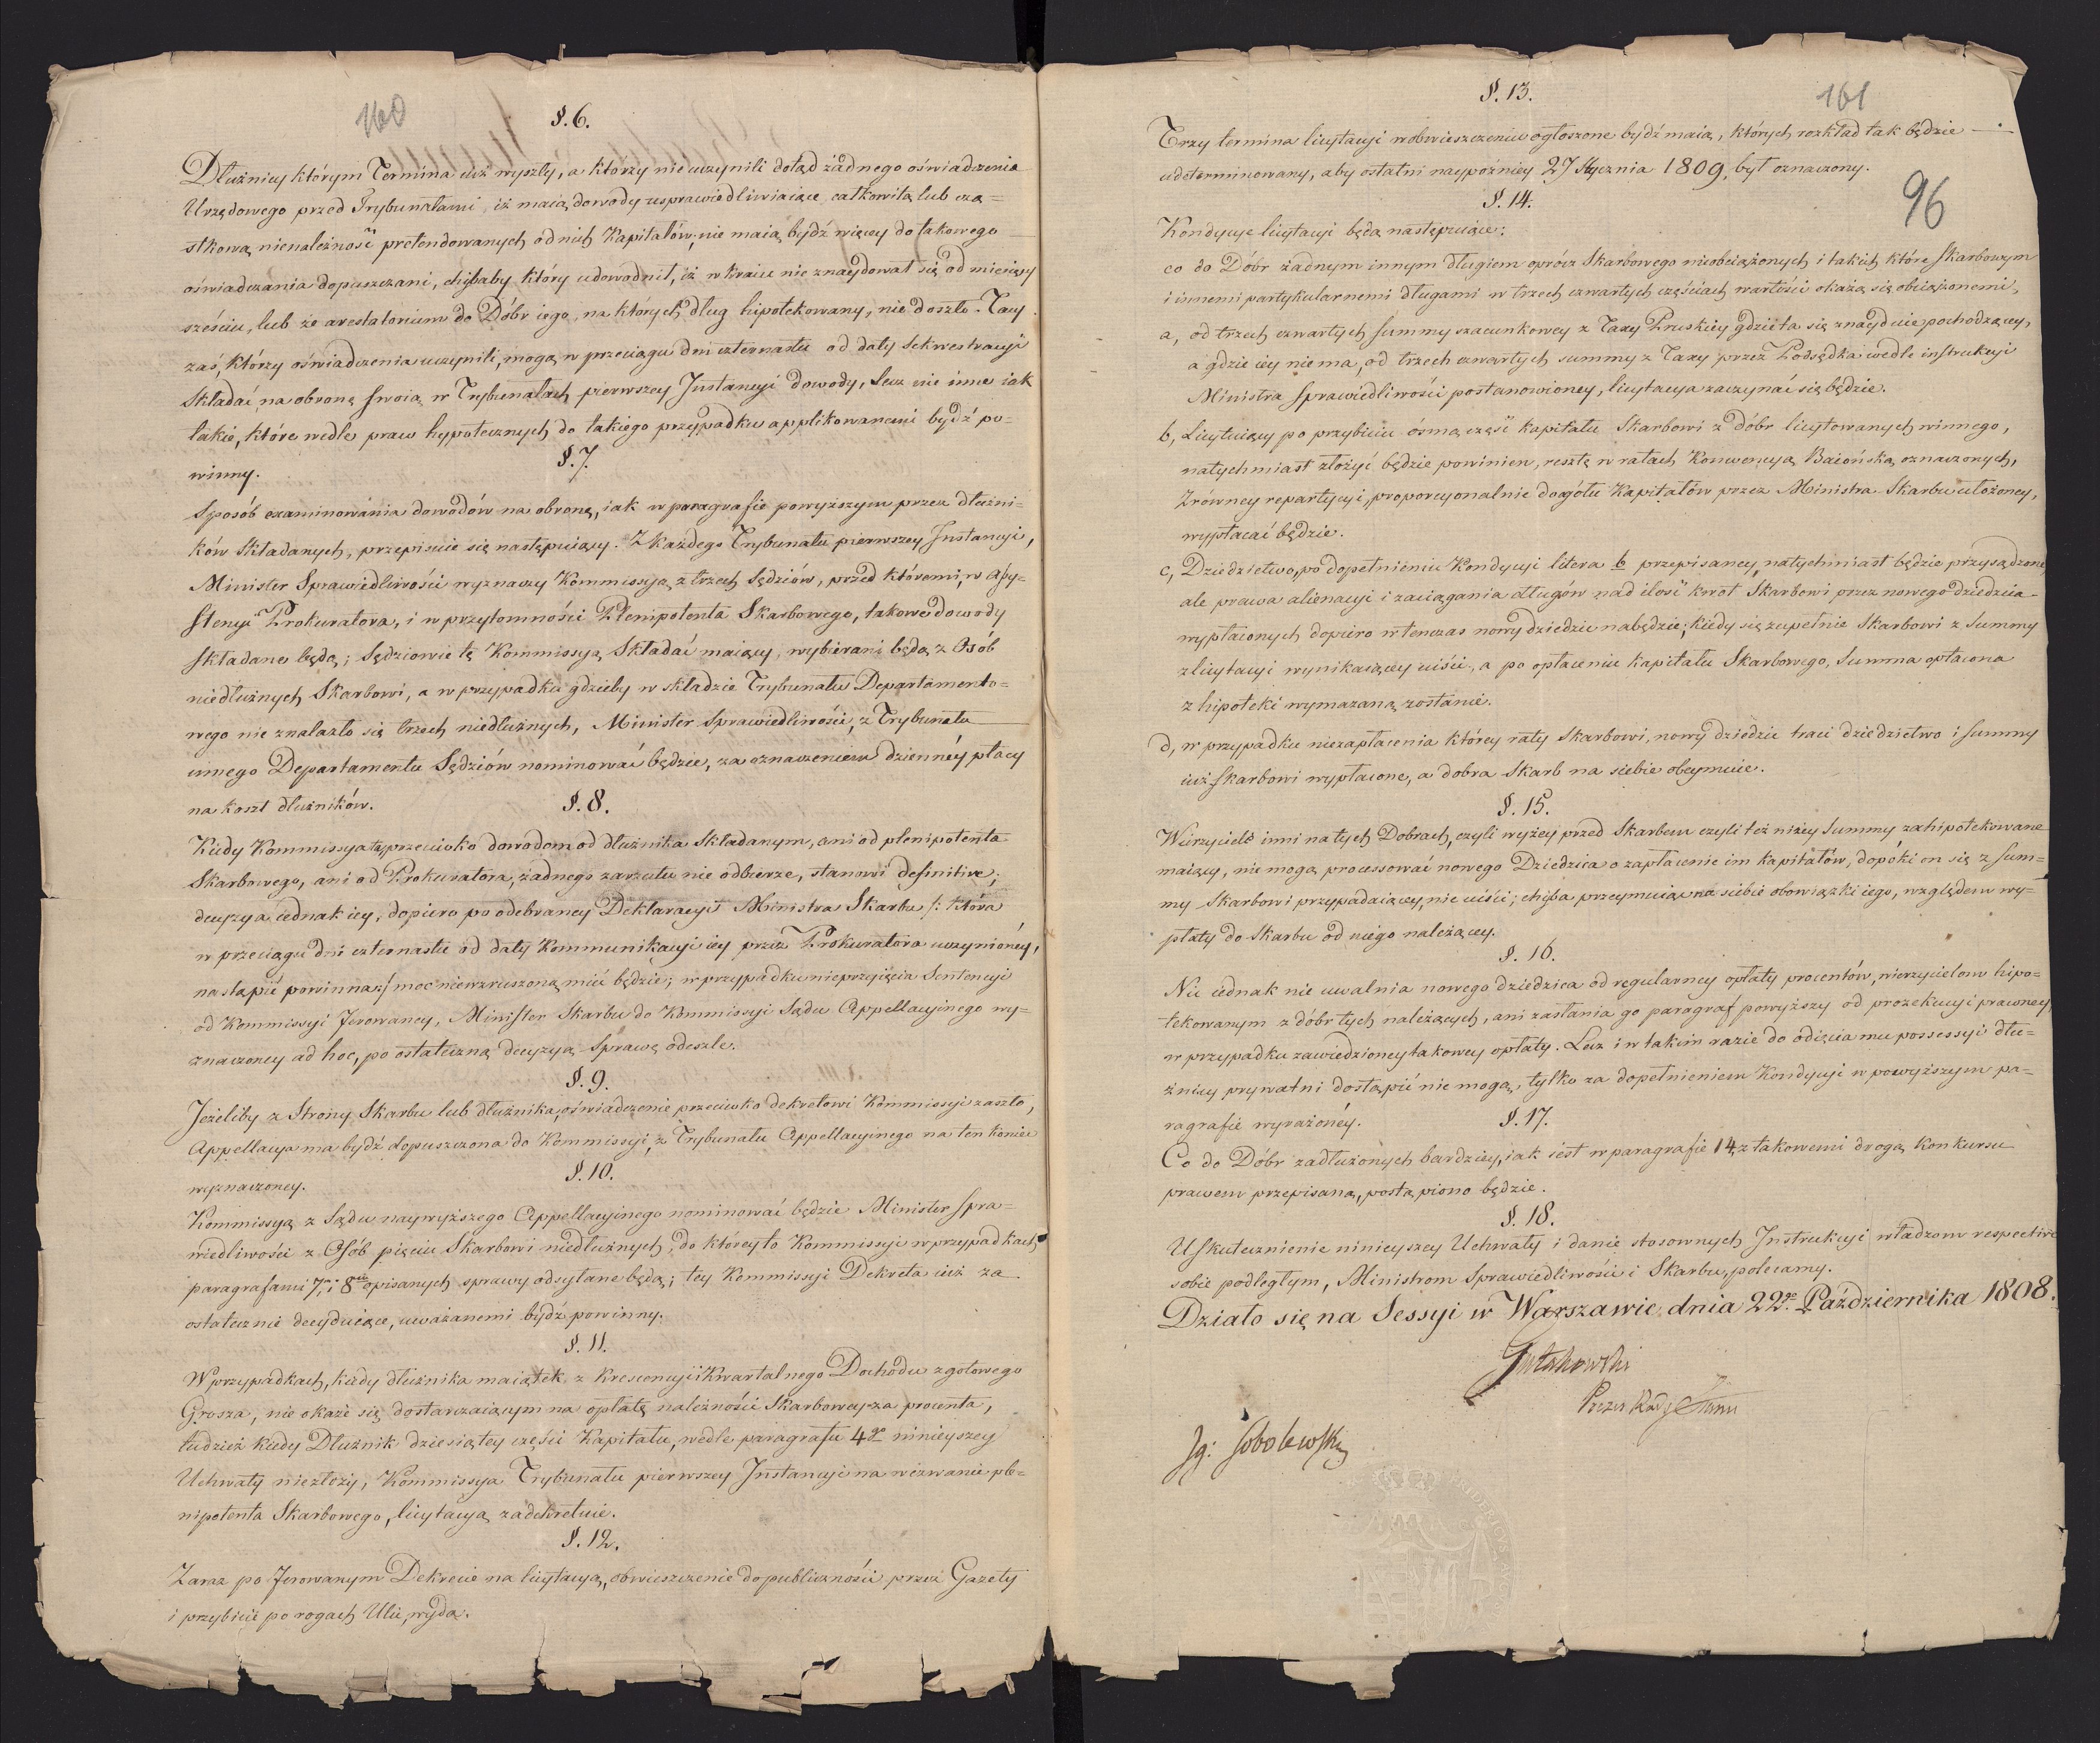 160
§. 6.
Dłużnicy którym Termina iuż wyszły, a którzy nie uczynili dotąd żadnego oświadczenia
Urzędowego przed Trybunałami, iż maią dowody usprawiedliwiaiące całkowitą lub czą=
stkową nienależność pretendowanych od nich Kapitałów, nie maią bydź więcey do takowego
oświadczania dopuszczani, chybaby który udowodnił, iż w kraiu nie znaydował się od miesięcy
sześciu, lub że arestatorium do Dóbr iego, na których dług hipotekowany, nie doszło. Tacy
zaś, którzy oświadczenia uczynili, mogą w przeciągu dni czternastu od daty Sekwestracyi
Składać na obronę swoią w Trybunałach pierwszey Instancyi dowody, lecz nie inne iak
takie, które wedle praw hypotecznych do takiego przypadku applikowanemi bydź po-
winny.
§. 7.
Sposób examinowania dowodów na obronę, iak w paragrafie powyższym przez dłużni-
ków Składanych, przepisuie się następuiący. Z każdego Trybunału pierwszey Instancyi,
Minister Sprawiedliwości wyznaczy Kommissyą z trzech Sędziów, przed któremi, w Assy=
stencyi Prokuratora, i w przytomności Plenipotenta Skarbowego, takowe dowody
składane będą; Sędziowie tę Kommissyą Składać maiący, wybierani będą z Osób
niedłużnych Skarbowi, a w przypadku gdzieby w składzie Trybunału Departamento=
wego nie znalazło się trzech niedłużnych, Minister Sprawiedliwości, z Trybunału
innego Departamentu Sędziów nominować będzie, za oznaczeniem dzienney płacy
na koszt dłużników.
§. 8.
Kiedy Kommissya ta, przeciwko dowodom od dłużnika Składanym, ani od plenipotenta
Skarbowego, ani od Prokuratora, żadnego zarzutu nie odbierze, stanowi definitive;
decyzya iednak iey, dopiero po odebraney Deklaracyi Ministra Skarbu /: która
w przeciągu dni czternastu od daty Kommunikacyi iey przez Prokuratora uczynioney,
nastąpić powinna :/ moc niewzruszoną mieć będzie; w przypadku nieprzyięcia Sentencyi
od Kommissyi ferowaney, Minister Skarbu do Kommissyi Sądu Appellacyinego wy=
znaczoney ad hoc, po ostateczną decyzyą Sprawę odeszle.
§. 9.
Jeżeliby z Strony Skarbu lub dłużnika, oświadczenie przeciwko dekretowi Kommissyi zaszło,
Appellacya ma bydź dopuszczona do Kommissyi, z Trybunału Appellacyinego na ten koniec
wyznaczoney.
§. 10.
Kommissyą z Sądu naywyższego Appellacyinego nominować będzie Minister Spra=
wiedliwości z Osób pięciu Skarbowi niedłużnych, do którey to Kommissyi w przypadkach
paragrafami 7. i 8. opisanych sprawy odsyłane będą; tey Kommissyi Dekreta iuż za
ostatecznie decyduiące, uważanemi bydź powinny.
§. 11.
W przypadkach, kiedy dłużnika maiątek z Krescencyi i Kwartalnego Dochodu z gotowego
Grosza, nie okaże się dostarczaiącym na opłatę należności Skarbowey za procenta,
tudzież kiedy Dłużnik dziesiątey części Kapitału, wedle paragrafu 4go ninieyszey
Uchwały nie złoży, Kommissya Trybunału pierwszey Instancyi na wezwanie ple=
nipotenta Skarbowego, licytacyą zadekretuie.
§. 12.
Zaraz po ferowanym Dekrecie na licytacyą, obwieszczenie do publiczności przez Gazety
i przybicie po rogach Ulic, wyda.
§. 13.
161
Trzy termina licytacyi w obwieszczeniu ogłoszone bydź maią, których rozkład tak będzie
udeterminowany, aby ostatni naypóźniey 27 Stycznia 1809, był oznaczony.
96
§. 14.
Kondycye licytacyi będą następuiące:
co do Dóbr żadnym innym długiem oprócz Skarbowego nieobciążonych i takich które Skarbowym
i innemi partykularnemi długami w trzech czwartych częściach wartości okażą się obciążonemi,
a, od trzech czwartych summy szacunkowey z Taxy Pruskiey gdzie ta się znayduie pochodzącey,
a gdzie iey niema, od trzech czwartych summy z Taxy przez Podsędka wedle instrukcyi
Ministra Sprawiedliwości postanowioney, licytacya zaczynać się będzie.
b, Licytuiący po przybiciu ósmą część kapitału Skarbowi z dóbr licytowanych winnego,
natychmiast złożyć będzie powinien, resztę w ratach Konwencyą Baiońską oznaczonych,
Zrówney repartycyi, proporcyonalnie do gółu Kapitałów przez Ministra Skarbu ułożoney,
wypłacać będzie.
c, Dziedzictwo, po dopełnieniu Kondycyi litera b przepisaney, natychmiast będzie przysądzone,
ale prawa alienacyi i zaciągania długów nad ilość kwot Skarbowi przez nowego dziedzica
wypłaconych dopiero wtenczas nowy dziedzic nabędzie; kiedy się zupełnie Skarbowi z Summy
z licytacyi wynikaiącey uiści, a po opłaceniu kapitału Skarbowego, Summa opłacona
z hipoteki wymazaną zostanie.
d, w przypadku niezapłacenia którey raty Skarbowi, nowy dziedzic traci dziedzictwo i summy
iuż Skarbowi wypłacone, a dobra Skarb na siebie obeymuie.
§. 15.
Wierzyciele inni na tych Dobrach, czyli wyżey przed Skarbem czyli też niżey Summy zahipotekowane
maiący, nie mogą processować nowego Dziedzica o zapłacenie im kapitałów, dopóki on się z Sum=
my Skarbowi przypadaiącey, nie uiści; chyba przeymuiąc na siebie obowiązki iego, względem wy=
płaty do Skarbu od niego należącey.
§. 16.
Nic iednak nie uwalnia nowego dziedzica od regularney opłaty procentów, wierzycielom hipo=
tekowanym z dóbr tych należących, ani zasłania go paragraf powyższy od prozekucyi prawney,
w przypadku zawiedzioney takowey opłaty. Lecz i w takim razie do odięcia mu possessyi dłu=
żnicy prywatni dostąpić nie mogą, tylko za dopełnieniem Kondycyi w powyższym pa=
ragrafie wyrażoney.
§. 17.
Co do Dóbr zadłużonych bardziey, iak iest w paragrafie 14, z takowemi drogą Konkursu
prawem przepisaną, postąpiono będzie.
§. 18.
Uskutecznienie ninieyszey Uchwały i danie stosownych Instrukcyi władzom respective
sobie podległym, Ministrom Sprawiedliwości i Skarbu, polecamy.
Działo się na Sessyi w Warszawie, dnia 22go Października 1808.
Gutakowski
Prezes Rady Stanu
Ig: Sobolewski